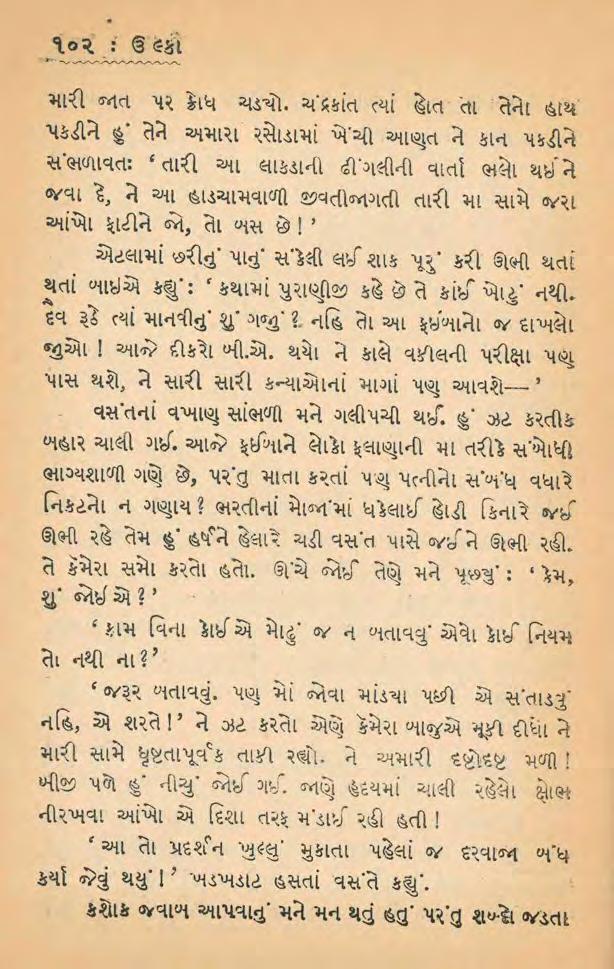 ૧૦૨ : ઉલ્કા
મારી જાત પર ક્રોધ ચડ્યો. ચંદ્રકાંત ત્યાં હોત તો તેનો હાથ
પકડીને હું તેને અમારા રસોડામાં ખેંચી આણત ને કાન પકડીને
સંભળાવતઃ ‘તારી આ લાકડાની ઢીંગલીની વાર્તા ભલે થઈને
જવા દે, ને આ હાડચામવાળી જીવતીજાગતી તારી મા સામે જરા
આંખો ફાટીને જો, તો બસ છે!’
એટલામાં છરીનું પાનું સંકેલી લઈ શાક પૂરું કરી ઊભી થતાં
થતાં બાઇએ કહ્યું: ‘કથામાં પુરાણીજી કહે છે તે કાંઈ ખોટું નથી.
દૈવ રૂઠે ત્યાં માનવીનું શું ગજું? નહિ તો આ ફઇબાનો જ દાખલો
જુઓ! આજે દીકરો બી.એ. થયો ને કાલે વકીલની પરીક્ષા પણ
પાસ થશે, ને સારી સારી કન્યાઓનાં માગાં પણ આવશે—’
વસંતનાં વખાણ સાંભળી મને ગલીપચી થઈ. હું ઝટ કરતીક
બહાર ચાલી ગઈ. આજે ફઈબાને લોકો ફલાણાની મા તરીકે સંબોધી
ભાગ્યશાળી ગણે છે, પરંતુ માતા કરતાં પણ પત્નીનો સંબંધ વધારે
નિકટનો ન ગણાય? ભરતીનાં મોજાંમાં ધકેલાઈ હોડી કિનારે જઈ
ઊભી રહે તેમ હું હર્ષને હેલારે ચડી વસંત પાસે જઈને ઊભી રહી.
તે કૅમેરા સમો કરતો હતો. ઊંચે જોઈ તેણે મને પૂછ્યું: ‘કેમ,
શું જોઈએ?’
‘કામ વિના કોઈએ મોઢું જ ન બતાવવું એવો કોઈ નિયમ
તો નથી ના?’
‘જરૂર બતાવવું. પણ મોં જોવા માંડ્યા પછી એ સંતાડવું
નહિ, એ શરતે!’ ને ઝટ કરતો એણે કૅમેરા બાજુએ મૂકી દીધો ને
મારી સામે ધૃષ્ટતાપૂર્વક તાકી રહ્યો. ને અમારી દષ્ટોદષ્ટ મળી!
બીજી પળે હું નીચું જોઈ ગઈ. જાણે હૃદયમાં ચાલી રહેલો ક્ષોભ
નીરખવા આંખો એ દિશા તરફ મંડાઈ રહી હતી!
‘આ તો પ્રદર્શન ખુલ્લું મુકાતા પહેલાં જ દરવાજા બંધ
કર્યા જેવું થયું!’ ખડખડાટ હસતાં વસંતે કહ્યું.
કશોક જવાબ આપવાનું મને મન થતું હતું પરંતુ શબ્દો જડતા